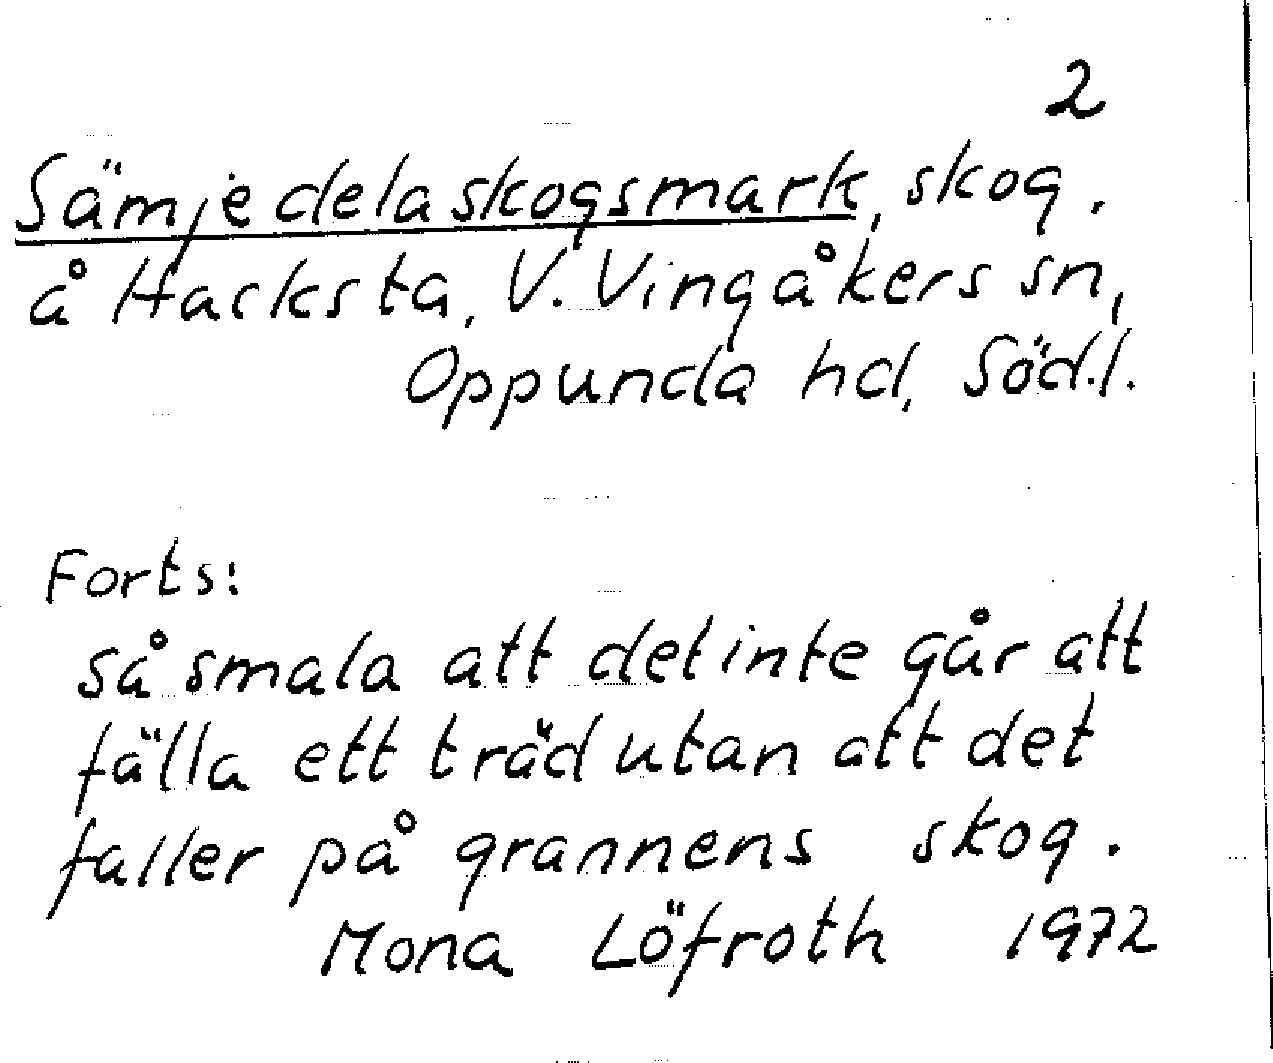 2
Sämjedelaskogsmark, skog.
å Hacksta, V. Vingåkers sn,
Oppunda hd, Söd.l.
Forts:
så smala att det inte går att
fälla ett träd utan att det
faller på grannens skog.
Mona Löfroth 1972